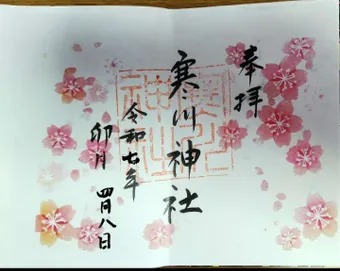 奉拝
寒川神社
令和七年
卯月 四月八日